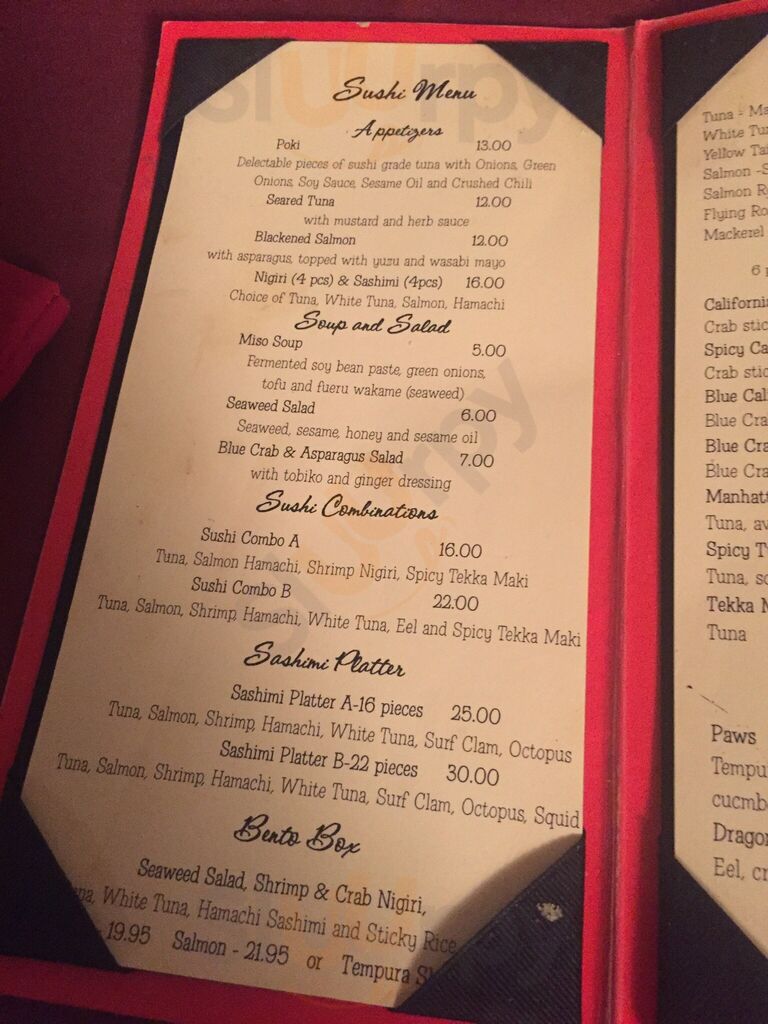 Sushi Menu
Appetizers
Poki 13.00
Delectable pieces of sushi grade tuna with Onions, Green
Onions, Soy Sauce, Sesame Oil and Crushed Chili
Seared Tuna 12.00
with mustard and herb sauce
Blackened Salmon 12.00
with asparagus, topped with yuzu and wasabi mayo
Nigiri (4 pcs) & Sashimi (4pcs) 16.00
Choice of Tuna, White Tuna, Salmon, Hamachi
Soup and Salad
Miso Soup 5.00
Fermented soy bean paste, green onions,
tofu and fueru wakame (seaweed)
Seaweed Salad 6.00
Seaweed, sesame, honey and sesame oil
Blue Crab & Asparagus Salad 7.00
with tobiko and ginger dressing
Sushi Combinations
Sushi Combo A 16.00
Tuna, Salmon Hamachi, Shrimp Nigiri, Spicy Tekka Maki
Sushi Combo B 22.00
Tuna, Salmon, Shrimp, Hamachi, White Tuna, Eel and Spicy Tekka Maki
Sashimi Platter
Sashimi Platter A-16 pieces 25.00
Tuna, Salmon, Shrimp, Hamachi, White Tuna, Surf Clam, Octopus
Sashimi Platter B-22 pieces 30.00
Tuna, Salmon, Shrimp, Hamachi, White Tuna, Surf Clam, Octopus, Squid
Bento Box
Seaweed Salad, Shrimp & Crab Nigiri,
White Tuna, Hamachi Sashimi and Sticky Rice
- 19.95 Salmon - 21.95 or Tempura
Tuna -
White
Yellow
Salmon -
Salmon
Flying
Mackerel
6
California
Crab
Spicy
Crab
Blue
Blue
Blue
Blue
Tuna,
Spicy
Tuna,
Tekka
Tuna
Paws
Eel,